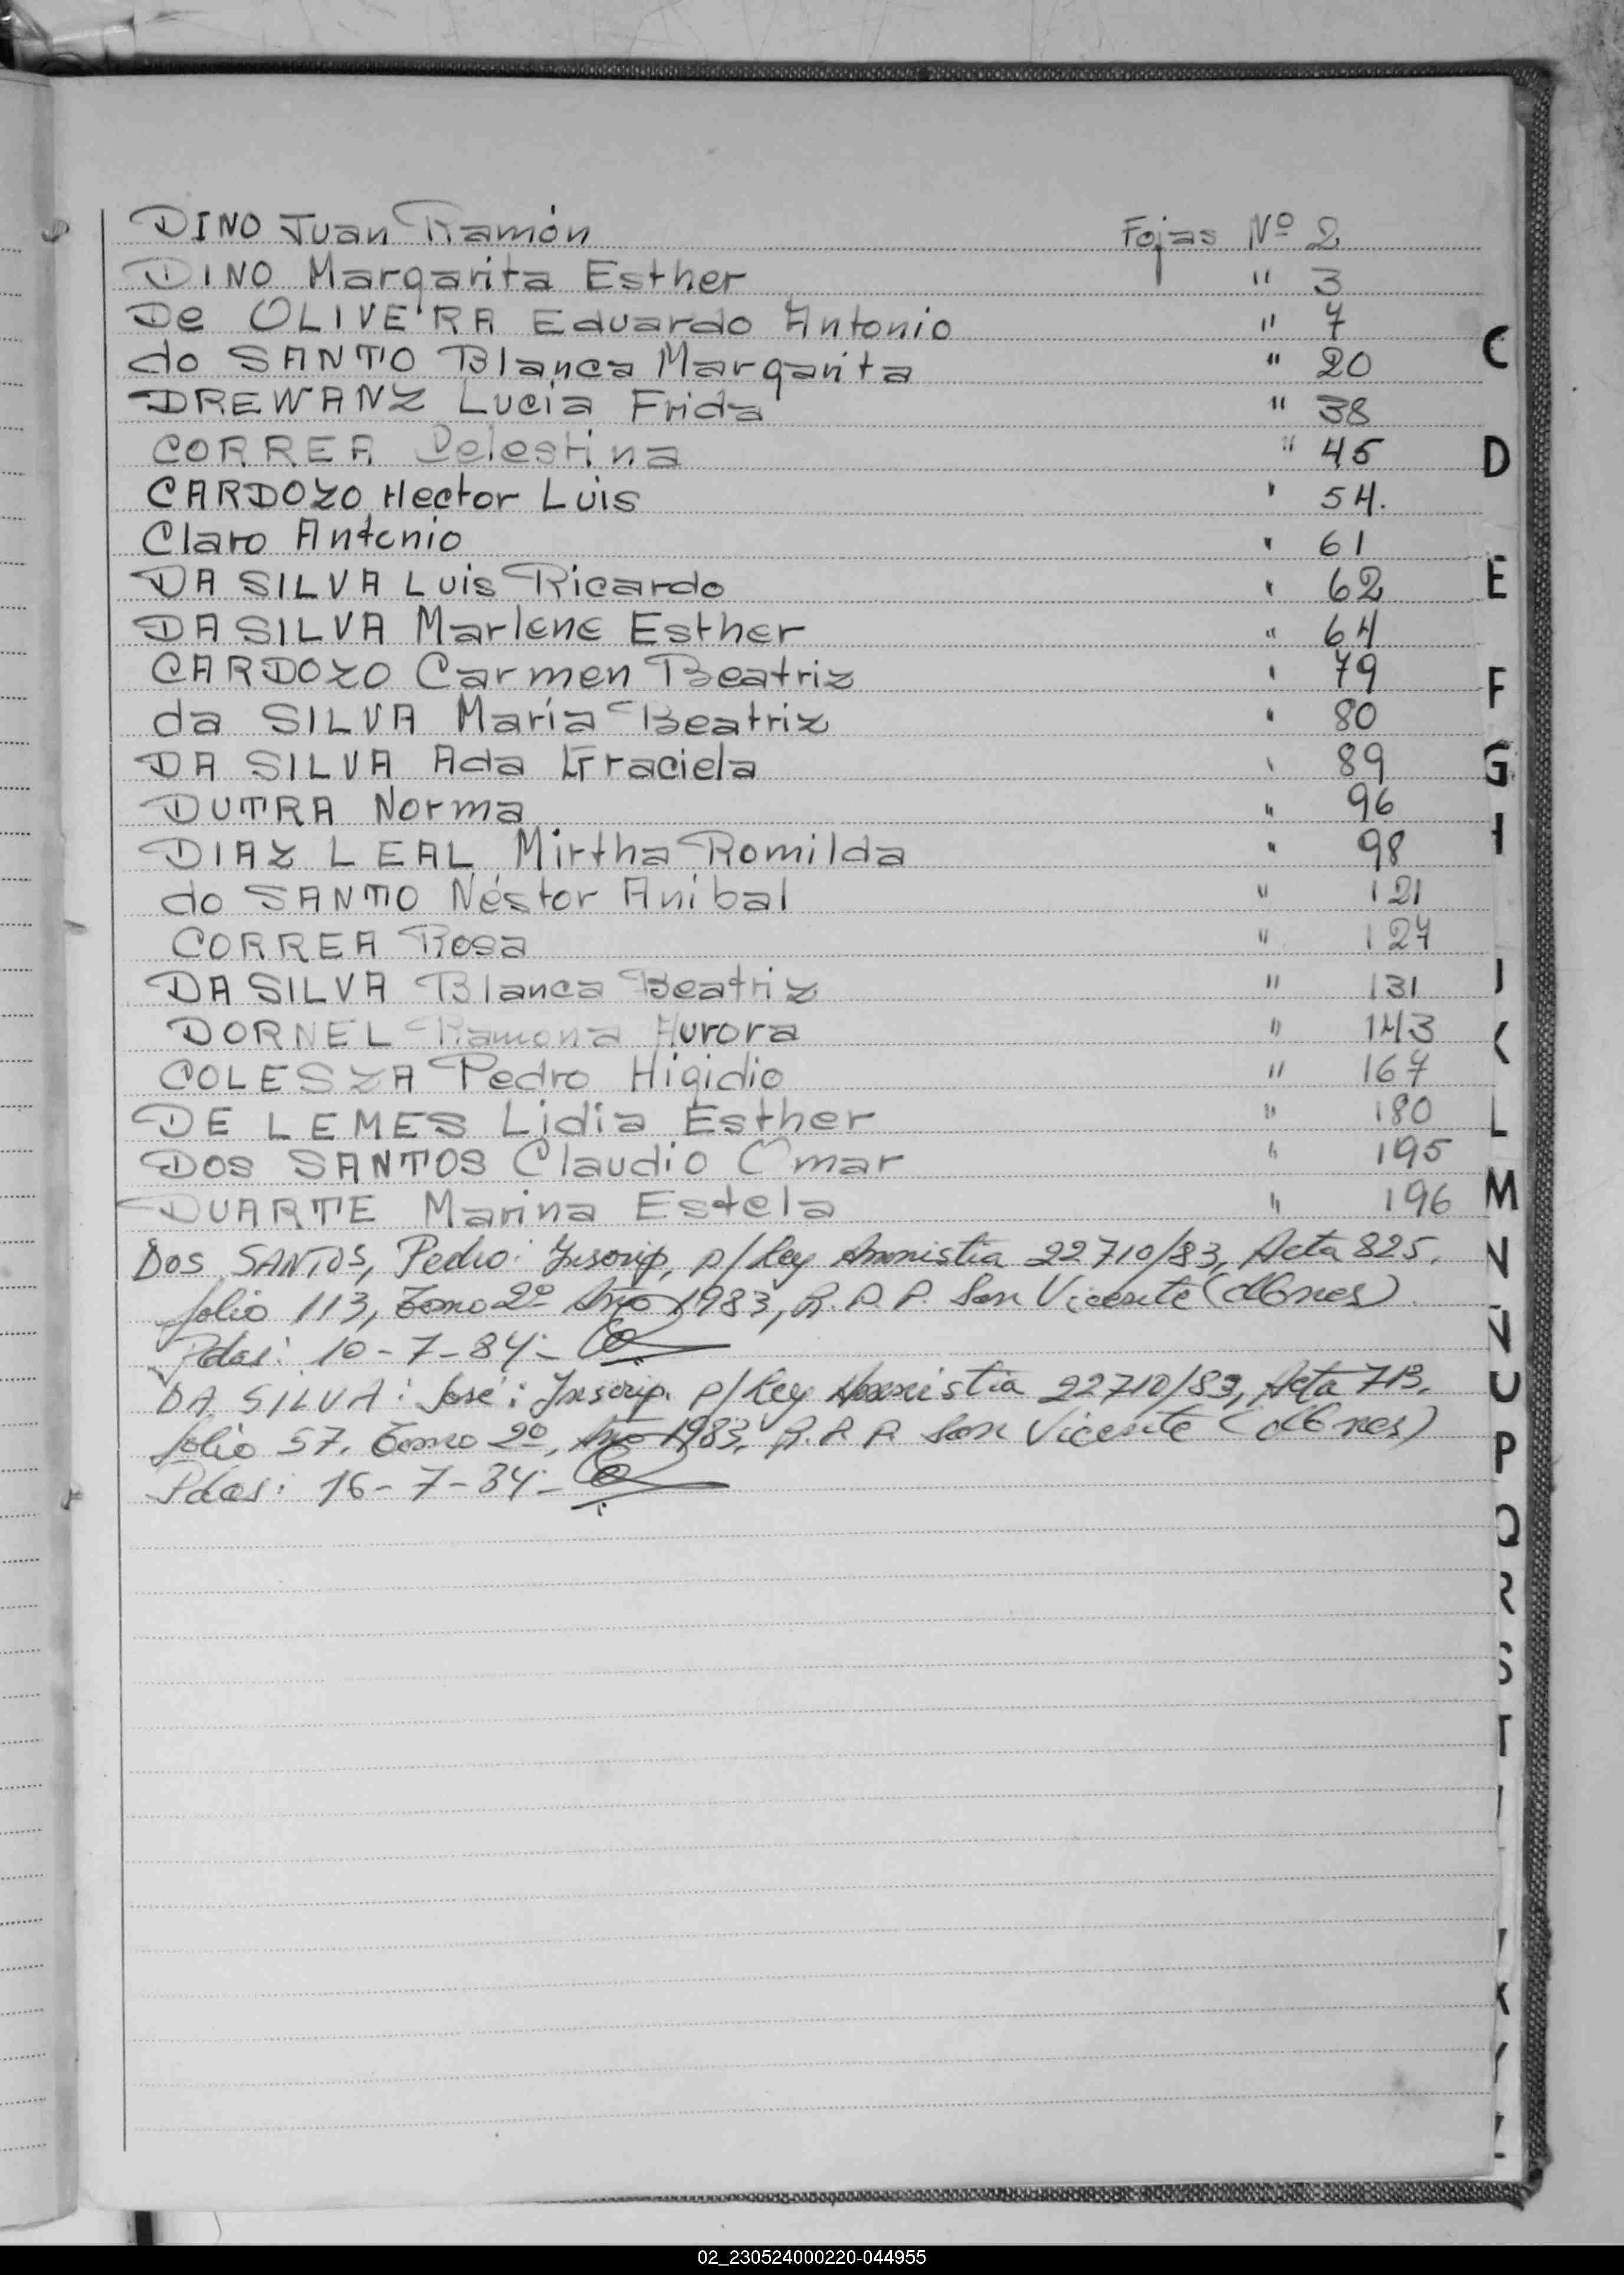 DINO Juan Ramón Fojas Nº 2
DINO Margarita Esther " 3
De OLIVEIRA Eduardo Antonio " 7
do SANTO Blanca Margarita " 20
DREWANZ Lucia Frida " 38
CORREA Celestina " 45
CARDOZO Hector Luis " 54.
Claro Antonio " 61
DA SILVA Luis Ricardo " 62
DA SILVA Marlene Esther " 64
CARDOZO Carmen Beatriz " 79
da SILVA María Beatriz " 80
DA SILVA Ada Graciela " 89
DUTRA Norma " 96
DIAZ LEAL Mirtha Romilda " 98
do SANTO Néstor Anibal " 121
CORREA Rosa " 127
DA SILVA Blanca Beatriz " 131
DORNEL Ramona Aurora " 143
COLESZA Pedro Higidio " 167
DE LEMES Lidia Esther " 180
DOS SANTOS Claudio Omar " 195
DUARTE Marina Estela " 196
DOS SANTOS, Pedro: Inscrip. p/ Ley Amnistia 22710/83, Acta 825.
folio 113, Tomo 2º Año 1983, R.P.P. San Vicente (Mnes).
Pdas: 10-7-84-
DA SILVA: José: Inscrip. p/ Ley Amnistia 22710/83, Acta 713.
folio 57. Tomo 2º, Año 1983, R.P.P. San Vicente (Mnes)
Pdas: 16-7-84-
C
D
E
F
G
H
I
J
K
L
M
N
Ñ
O
P
Q
R
S
T
02_230524000220-044955